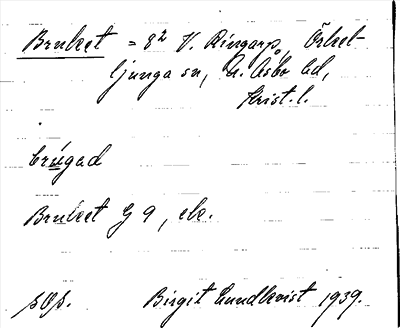 Bruket = 8² V. Ringarp, Örkel-
ljunga sn, N. Åsbo hd,
Krist. l.
brúgad
Bruket G 9, ek.
Birgit Lundkvist 1939.